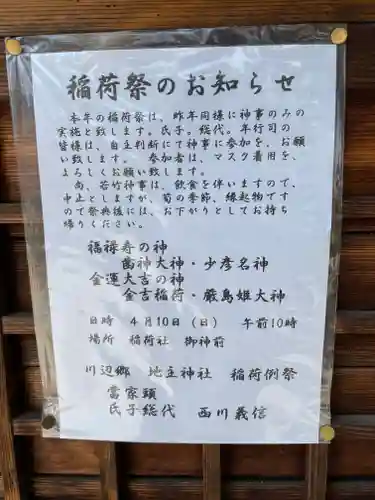 稲荷祭のお知らせ
本年の稲荷祭は、昨年同様に神事のみの
実施と致します。氏子。総代。年行司の
皆様は、自主判断にて神事に参加を、お願
い致します。 参加者は、マスク着用を、
よろしくお願い致します。
尚、若竹神事は、飲食を伴いますので、
中止としますが、筍の季節、縁起物です
ので祭典後には、お下がりとしてお持ち
帰りください。
福禄寿の神
歯神大神・少彦名神
金運大吉の神
金吉稲荷・厳島姫大神
日時 4月10日（日） 午前10時
場所 稲荷社 御神前
川辺郷 地主神社 稲荷例祭
當家頭
氏子総代 西川義信